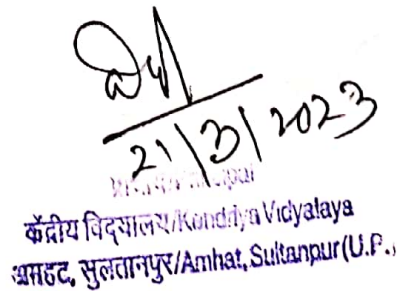 21/3/2023
केंद्रीय विद्यालय/Kendriya Vidyalaya
अमहट, सुलतानपुर/Amhat, Sultanpur (U.P.)